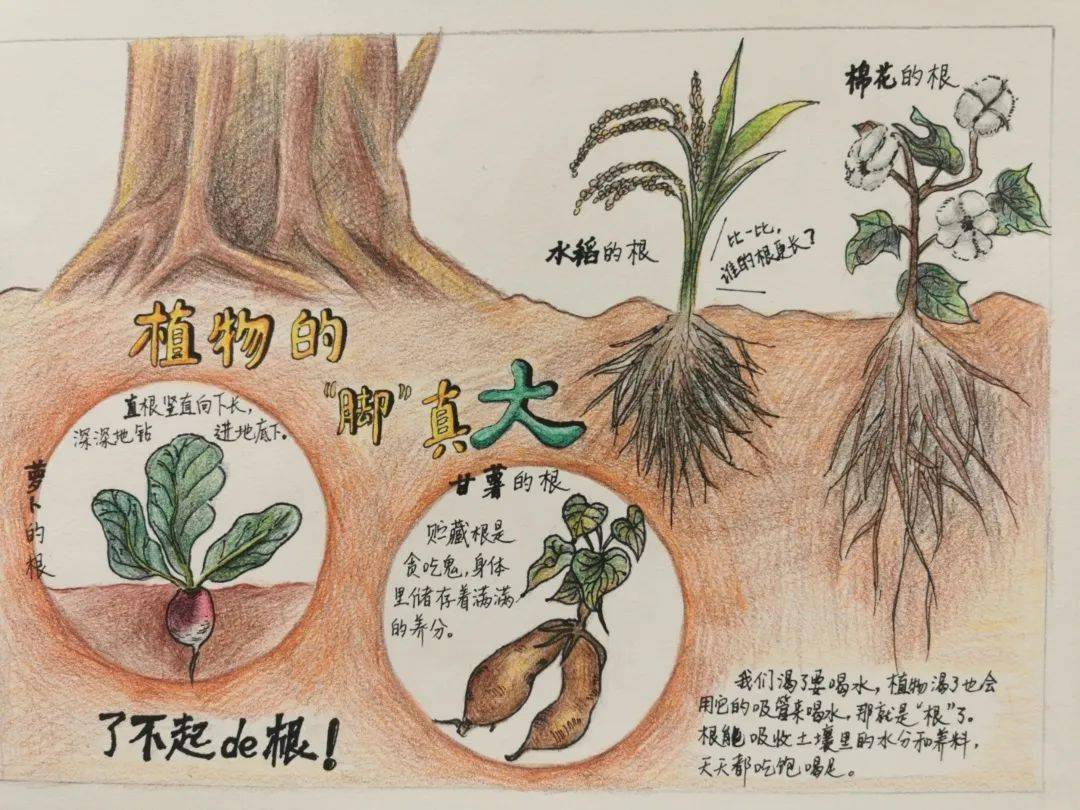 棉花的根
水稻的根
比一比,
谁的根更长?
植物的
"脚"真大
直根竖直向下长,
深深地钻进地底下。
萝卜的根
甘薯的根
贮藏根是
贪吃鬼,身体
里储存着满满
的养分。
了不起de根!
我们渴了要喝水,植物渴了也会
用它的吸管来喝水,那就是"根"了。
根能吸收土壤里的水分和养料,
天天都吃饱喝足。